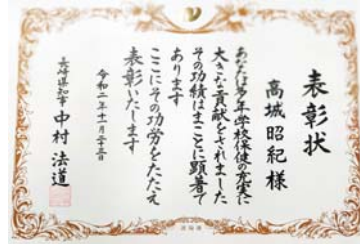 表彰状
高城昭紀様
あなたは多年学校保健の充実に
大きな貢献をされました
その功績はまことに顕著で
あります
ここにその功労をたたえ
表彰いたします
令和二年十一月二十三日
長崎県知事 中村法道